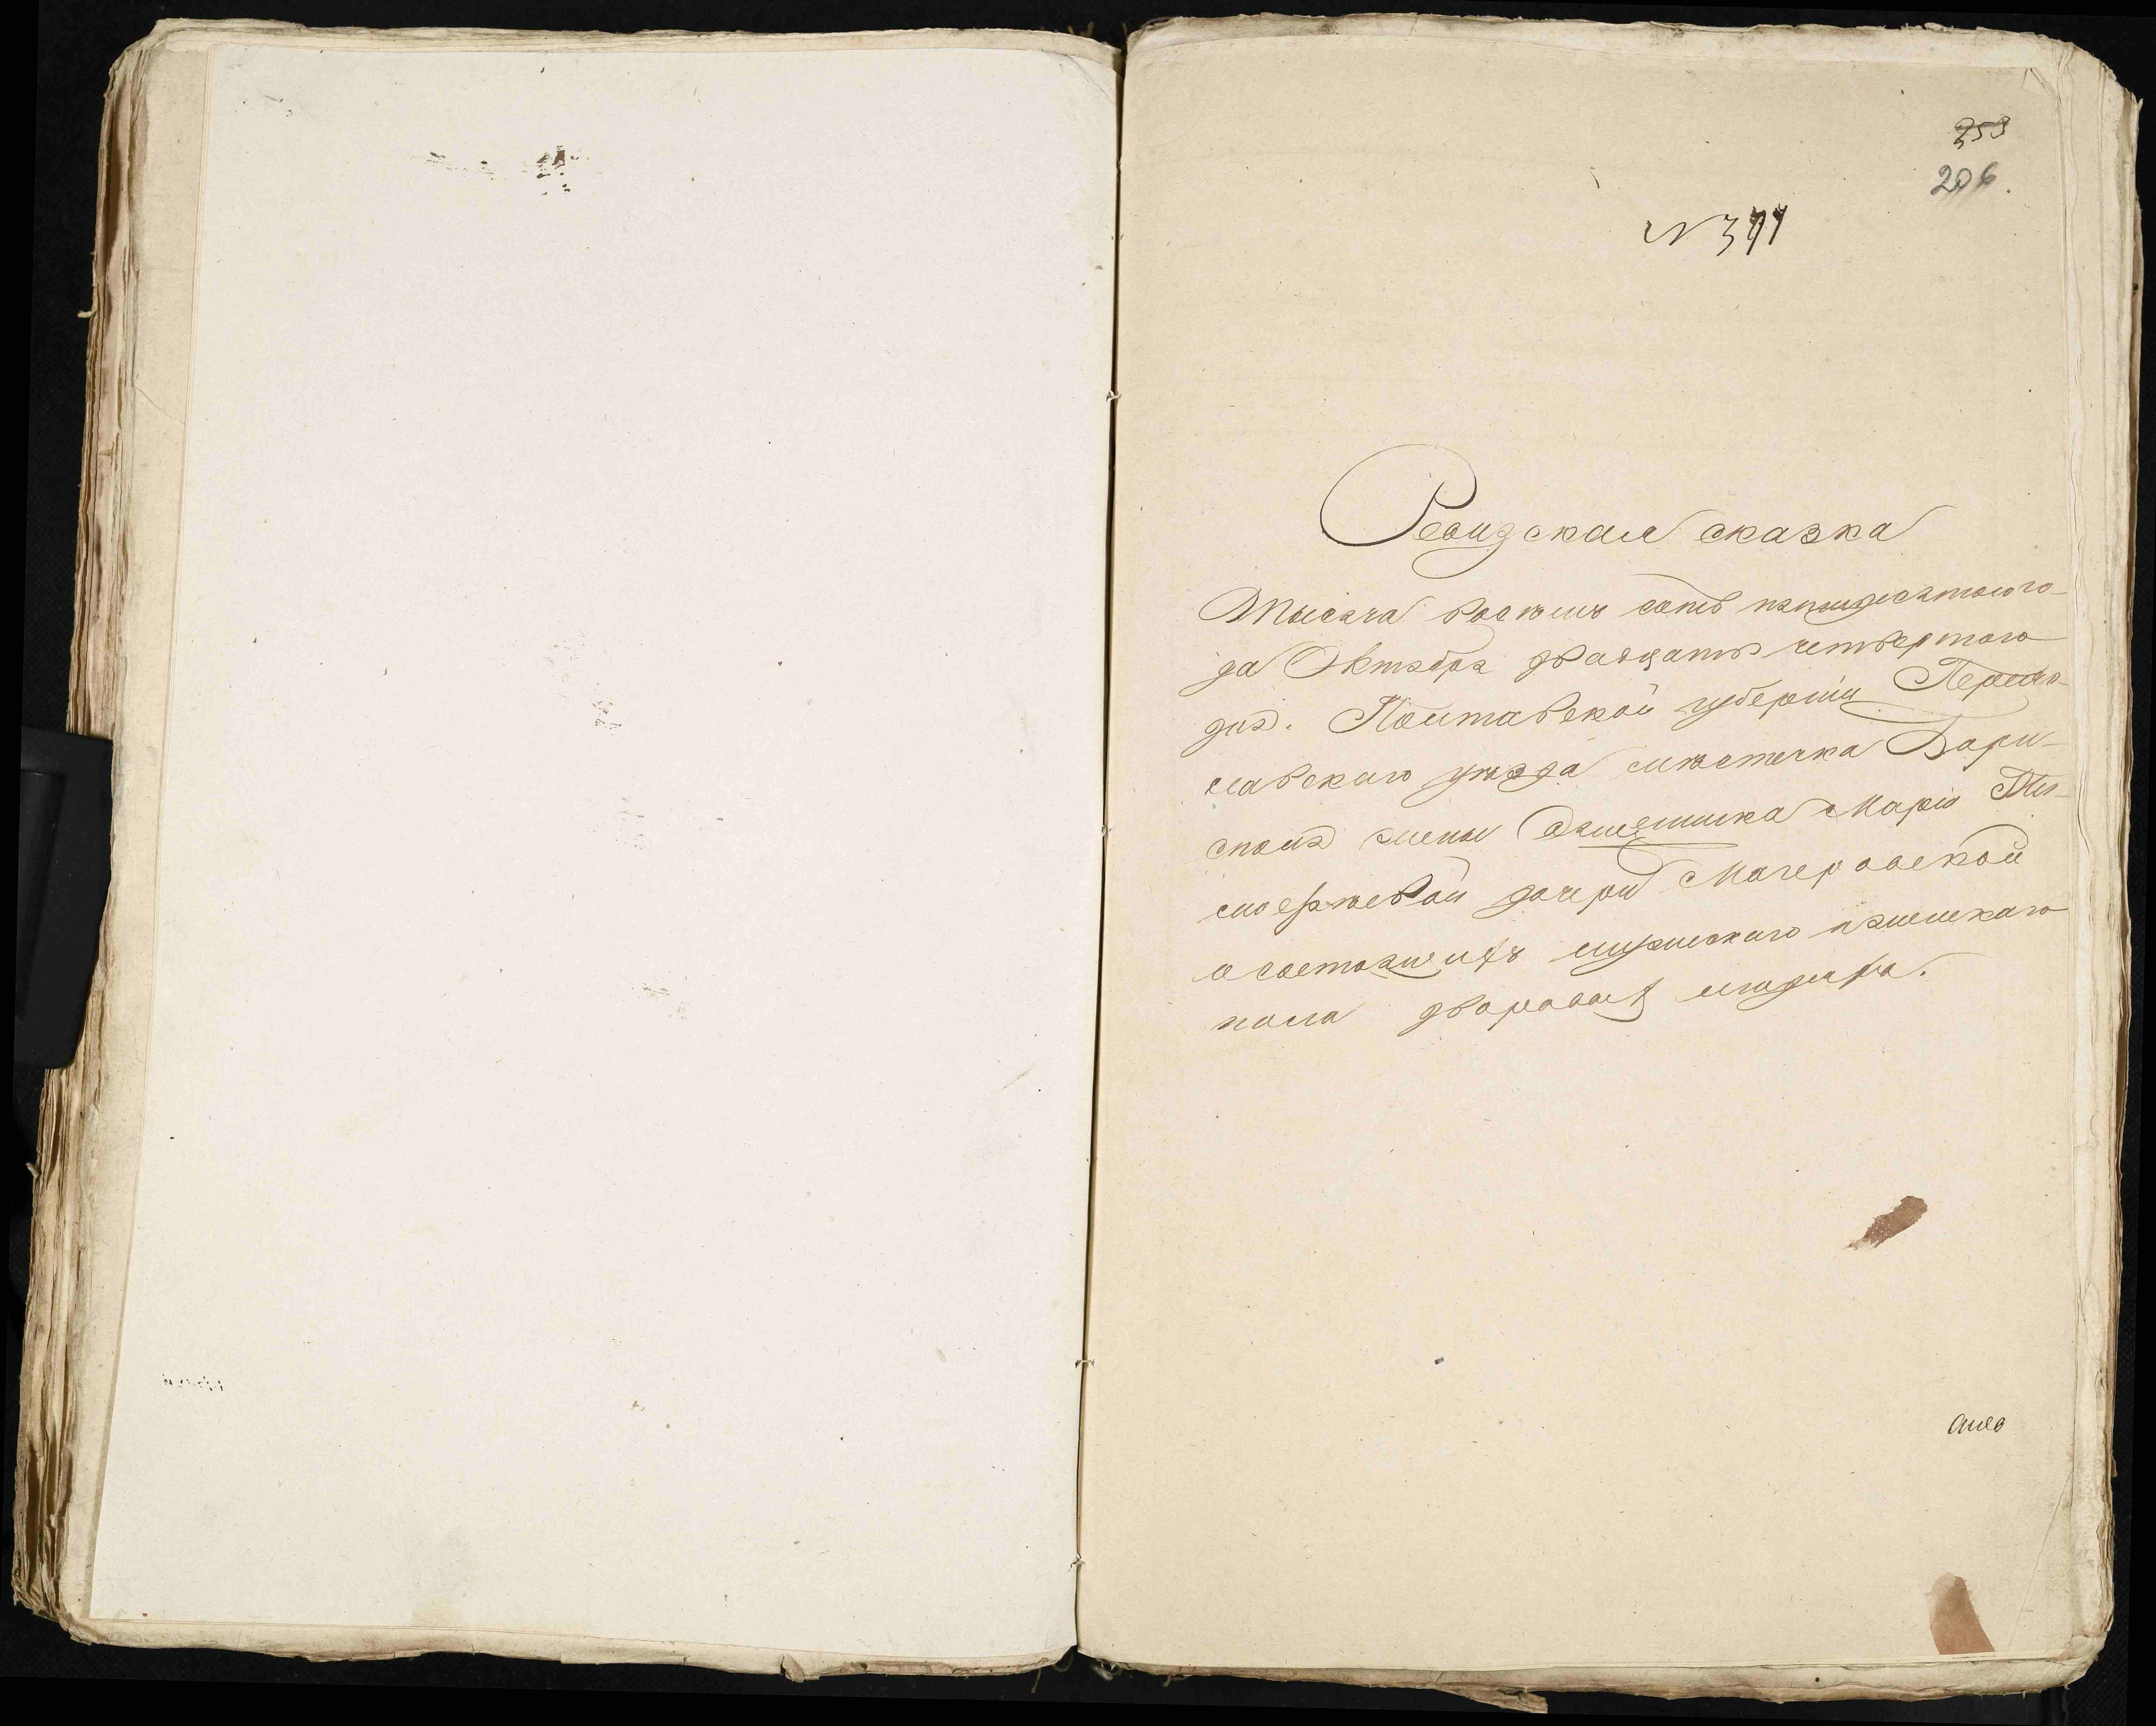 353
206.
N 371
Ревизская сказка
Тысяча восемь сотъ пятидесятого го-
да Октября двадцать четвертого
дня. Полтавской губерніи Переяс-
лавского уѣзда мѣстечка Бори-
споля жены Маріи Ти-
мофѣевой дочери Мачеровской
о состоящихъ мужеского и женскаго
пола дворовыхъ людяхъ.